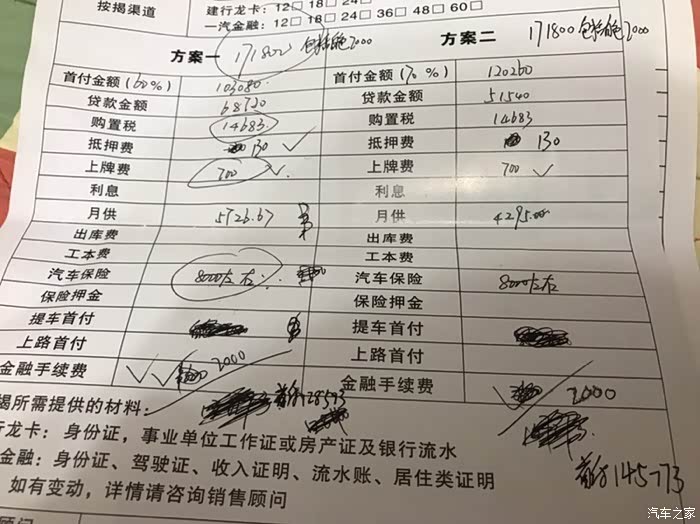 按揭渠道
建行龙卡: 12□ 18□ 24□
一汽金融: 12□ 18□ 24□ 36□ 48□ 60□
方案一 171800 包括 2000 方案二 171800 包括 2000
首付金额(60%) 103080 首付金额(70%) 120260
贷款金额 68720 贷款金额 51540
购置税 14683 购置税 14683
抵押费 130 抵押费 130
上牌费 700 上牌费 700
利息 利息
月供 5726.67 月供 4295.00
出库费 出库费
工本费 工本费
汽车保险 8000左右 汽车保险 8000左右
保险押金 保险押金
提车首付 提车首付
上路首付 上路首付
金融手续费 2000 金融手续费 2000
揭所需提供的材料: 首付128593
行龙卡: 身份证，事业单位工作证或房产证及银行流水
金融: 身份证、驾驶证、收入证明、流水账、居住类证明 首付145773
如有变动，详情请咨询销售顾问
顾问
汽车之家